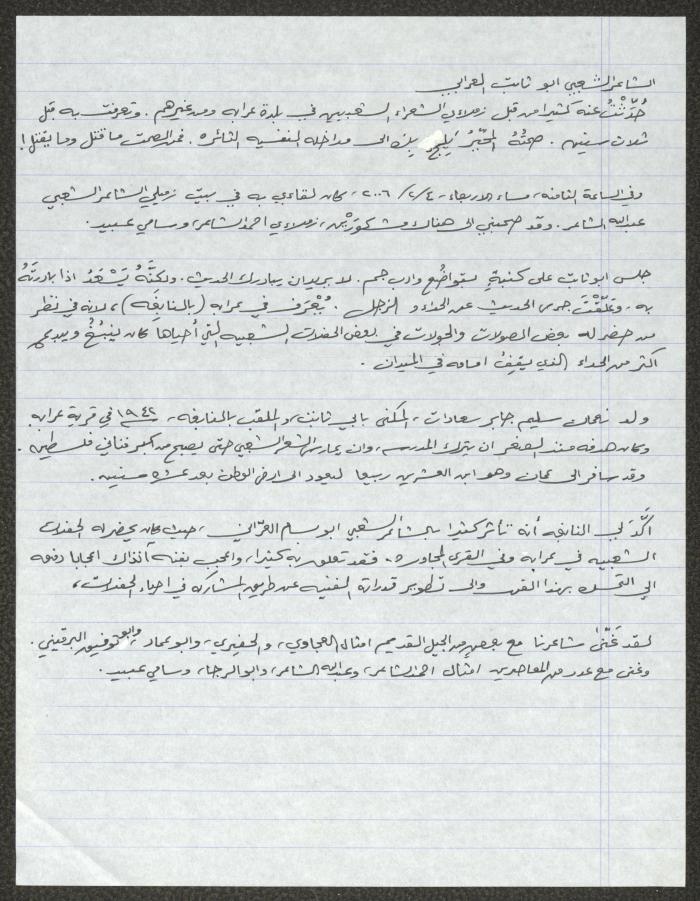 الشاعر الشعبي ابو ثابت العرابي
حُدِّثْتُ عنه كثيرا من قبل زملاءي الشعراء الشعبيين في بلدة عرابه ومن غيرهم . وتعرفت به قبل
ثلاث سنين . صمتُهُ المُحَيِّرُ يَلِجُ بك الى مداخله النفسيه الثائره . فمن الصمت ما قتل وما يقتل !
وفي الساعة الثامنه، مساء الاربعاء، ٢٠٠٦/٢/٤، كان لقاءي به في بيت زميلي الشاعر الشعبي
عبدالله الشاعر . وقد صحبني الى هناك مشكورَيْن، زملاءي احمد الشاعر، وسامي عبيد .
جلس ابو ثابت على كنبةٍ بتواضُع وادب جم . لا يريد ان يبادرك الحديث . ولكنَّهُ يَسْعَدُ اذا بادرتَهُ
به . وتَلَقَّفْتَ جرى الحديث عن الحداء و الزجل . يُعْرَف في عرابه (بالنابغه)، لانه في نظر
من حضر له بعض الصولات والجولات في بعض الحفلات الشعبيه التي أحياها كان ينبُغُ ويبدع
اكثر من الحداء الذي يقِفُ امامه في الميدان .
ولد نعمان سليم جابر سعادات، المكنى بابي ثابت، والملقب بالنابغه، ١٩٤٢ في قرية عرابه
وكان هدفه منذ الصغر ان يترك المدرسه، وان يمارس الشعر الشعبي حتى يصبح من كبر فناني فلسطين .
وقد سافر الى عمان وهو ابن العشرين ربيعا ليعود الى ارض الوطن بعد عشرة سنين .
أكَّدَ لي النابغه أنه تأثر كثيرا بالشاعر الشعبي ابو بسام العرّاني، حيث كان يحضر له الحفلات
الشعبيه في عرابه وفي القرى المجاوره. فقد تعلق به كثيرا، واعجب بفنه آنذاك اعجابا دفعه
الى التمسك بهذا الفن والى تطوير قدراته الفنيه عن طريق المشاركه في احياء الحفلات،
لقد غَنّى شاعرنا مع بعض من الجيل القديم امثال العجاوي، والحفيري، وابو عماد، وابو توفيق البرقيني .
وغنى مع عدد من المعاصرين امثال احمد الشاعر، وعبدالله الشاعر، وابو الرجا، وسامي عبيد .